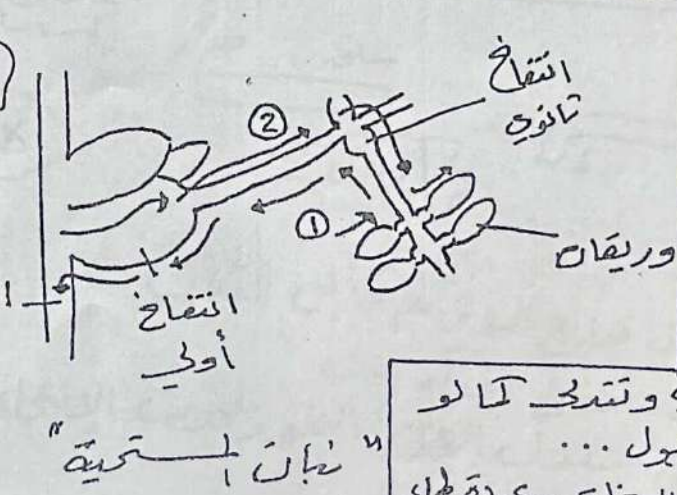 انتفاخ
ثانوي
②
①
وريقات
انتفاخ
أولي
"نبات المستحية"
وتتدلى كما لو